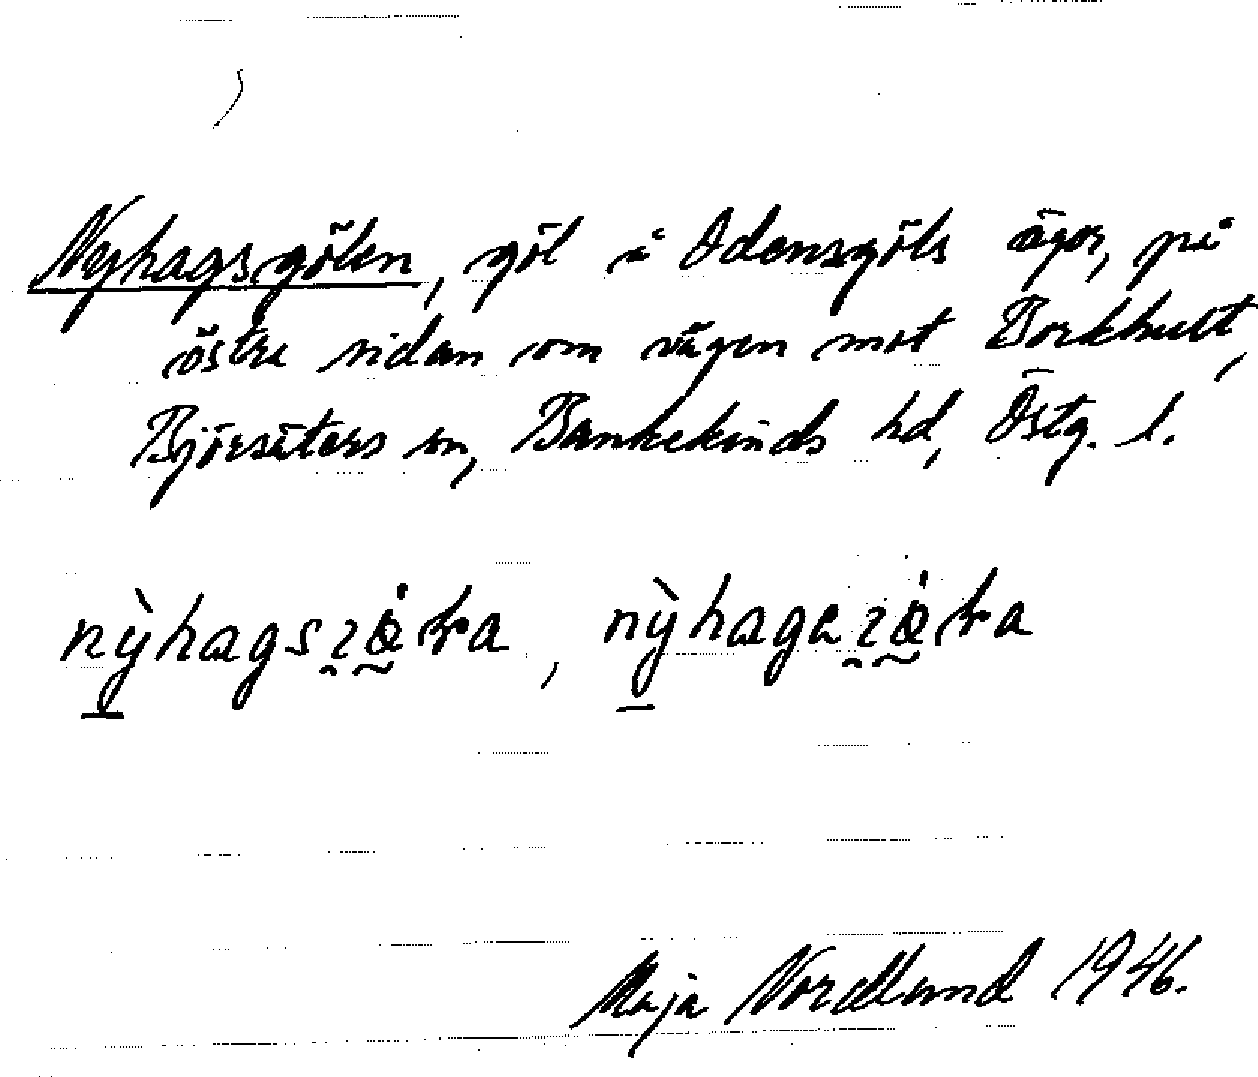 Nyhagsgölen, göl i Odensgöls ägor, på
östra sidan om vägen mot Borkhult,
Björsäters sn, Bankekinds hd, Östg. l.
Maja Nordlund 1946.